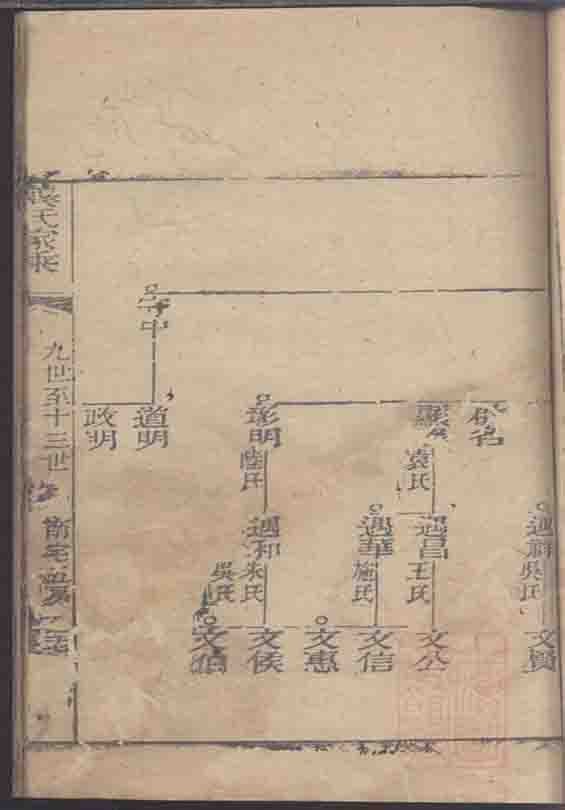 遇祥
吳氏
文賢
名
顯
袁氏
遇昌
王氏
文公
遇華
施氏
文信
文惠
彰明
陸氏
遇和
朱氏
吳氏
文侯
文伯
守中
道明
政明
氏家乘
九世至十三世